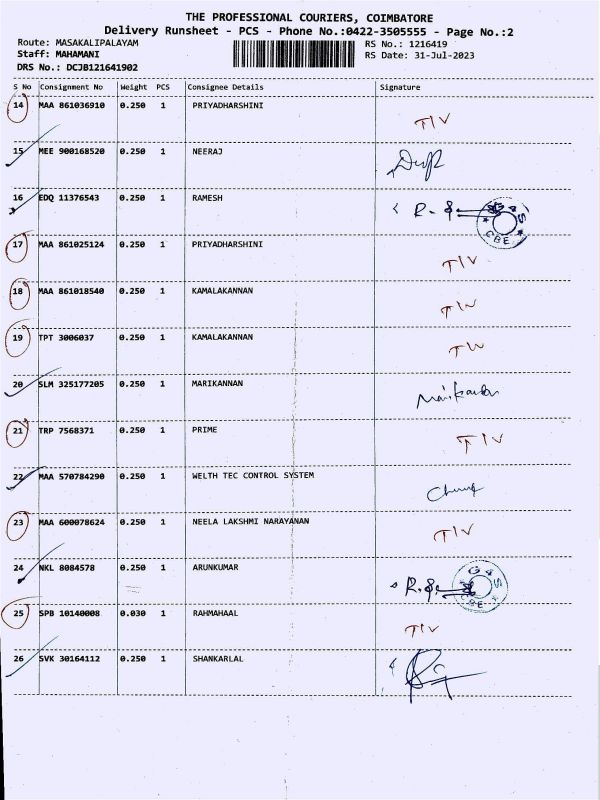 THE PROFESSIONAL COURIERS, COIMBATORE
Delivery Runsheet - PCS - Phone No.:0422-3505555 - Page No.:2
Route: MASAKALIPALAYAM RS No.: 1216419
Staff: MAHAMANI RS Date: 31-Jul-2023
DRS No.: DCJB121641902
S No Consignment No Weight PCS Consignee Details Signature
14 MAA 861036910 0.250 1 PRIYADHARSHINI T/V
15 MEE 900168520 0.250 1 NEERAJ
16 EDQ 11376543 0.250 1 RAMESH R. S CBE
17 MAA 861025124 0.250 1 PRIYADHARSHINI T/V
18 MAA 861018540 0.250 1 KAMALAKANNAN T/V
19 TPT 3006037 0.250 1 KAMALAKANNAN T/V
20 SLM 325177205 0.250 1 MARIKANNAN
21 TRP 7568371 0.250 1 PRIME T/V
22 MAA 570784290 0.250 1 WELTH TEC CONTROL SYSTEM
23 MAA 600078624 0.250 1 NEELA LAKSHMI NARAYANAN T/V
24 NKL 8084578 0.250 1 ARUNKUMAR R. S. CBE
25 SPB 10140008 0.030 1 RAHMAHAAL T/V
26 SVK 30164112 0.250 1 SHANKARLAL